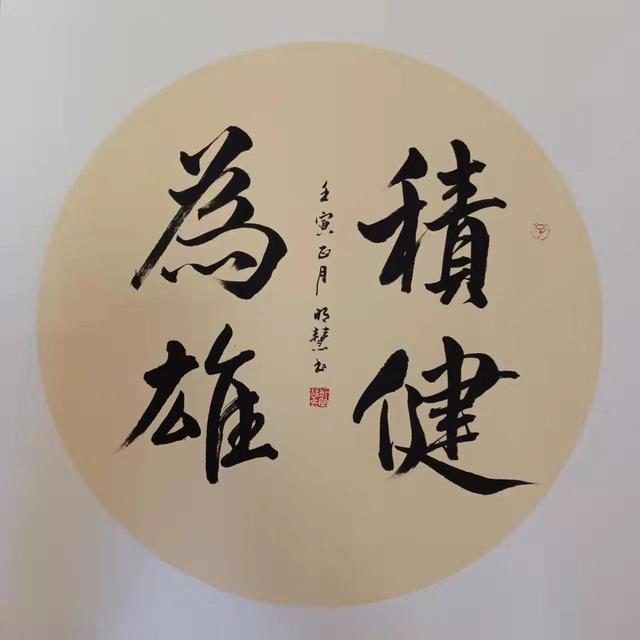 積健
為雄
壬寅正月明慧书